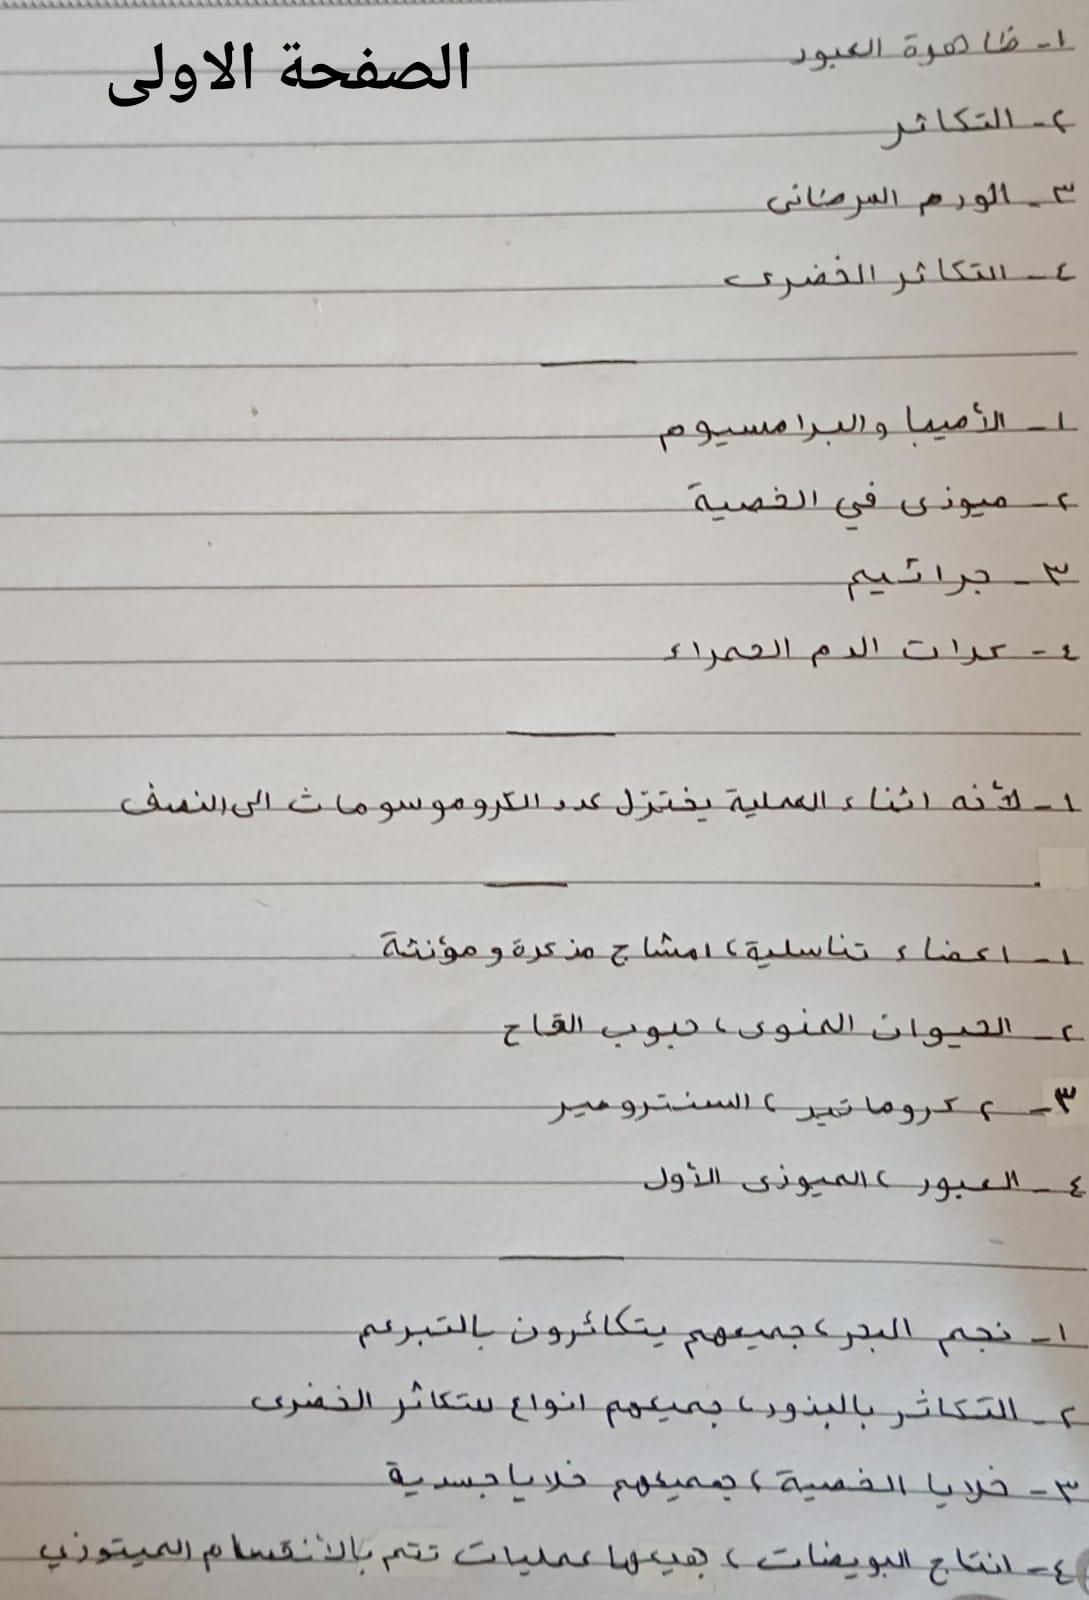 الصفحة الاولى
١- ظاهرة العبور
٢- التكاثر
٣- الورم السرطانى
٤- التكاثر الخضرى
١- الأميبا والبرامسيوم
٢- ميوزى في الخصية
٣- جراثيم
٤- كرات الدم الحمراء
١- لأنه اثناء العملية يختزل عدد الكروموسومات الى النصف
١- اعضاء تناسلية، امشاج مذكرة ومؤنثة
٢- الحيوان المنوى، حبوب القاح
٣- ٢ كروماتيد، السنترومير
٤- العبور، الميوزى الأول
١- نجم البحر، جميعهم يتكاثرون بالتبرعم
٢- التكاثر بالبذور، جميعهم انواع للتكاثر الخضرى
٣- خلايا الخصية، جميعهم خلايا جسدية
٤- انتاج البويضات، جميعها عمليات تتم بالأنقسام الميتوزي